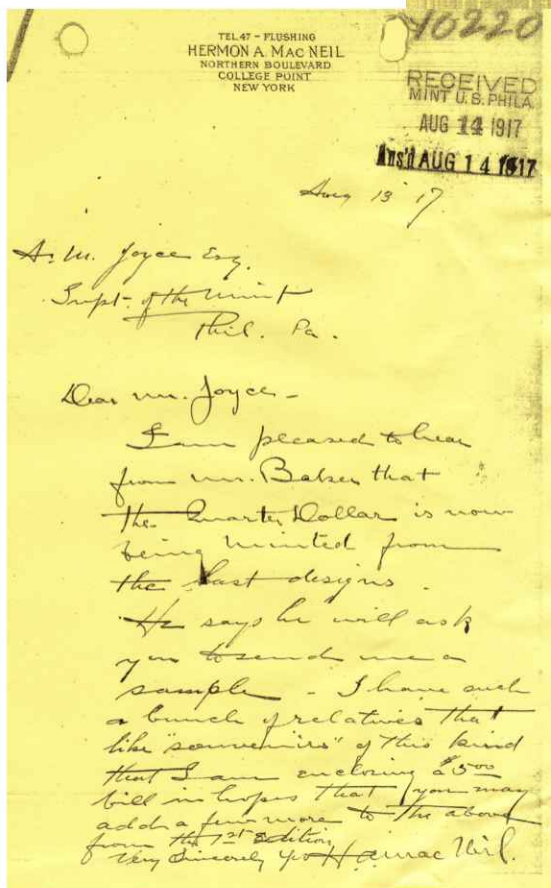 TEL 47 - FLUSHING
HERMON A. MAC NEIL
NORTHERN BOULEVARD
COLLEGE POINT
NEW YORK
40220
RECEIVED
MINT U.S. PHILA.
AUG 14 1917
Ans'd AUG 14 1917
Aug 13 '17
A. M. Joyce Esq.
Supt- of the Mint
Phil. Pa.
Dear Mr. Joyce -
I am pleased to hear
from Mr. Baker that
the Quarter Dollar is now
being minted from
the last designs.
He says he will ask
you to send me a
sample - I have such
a bunch of relatives that
like "souvenirs" of this kind
that I am enclosing a $5 00
bill in hopes that you may
add a few more to the above
from the 1st Edition
Very Sincerely yrs H A MacNeil.